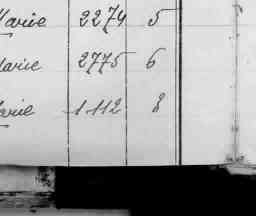 Marie 2274 5
Marie 2775 6
Marie 1112 8